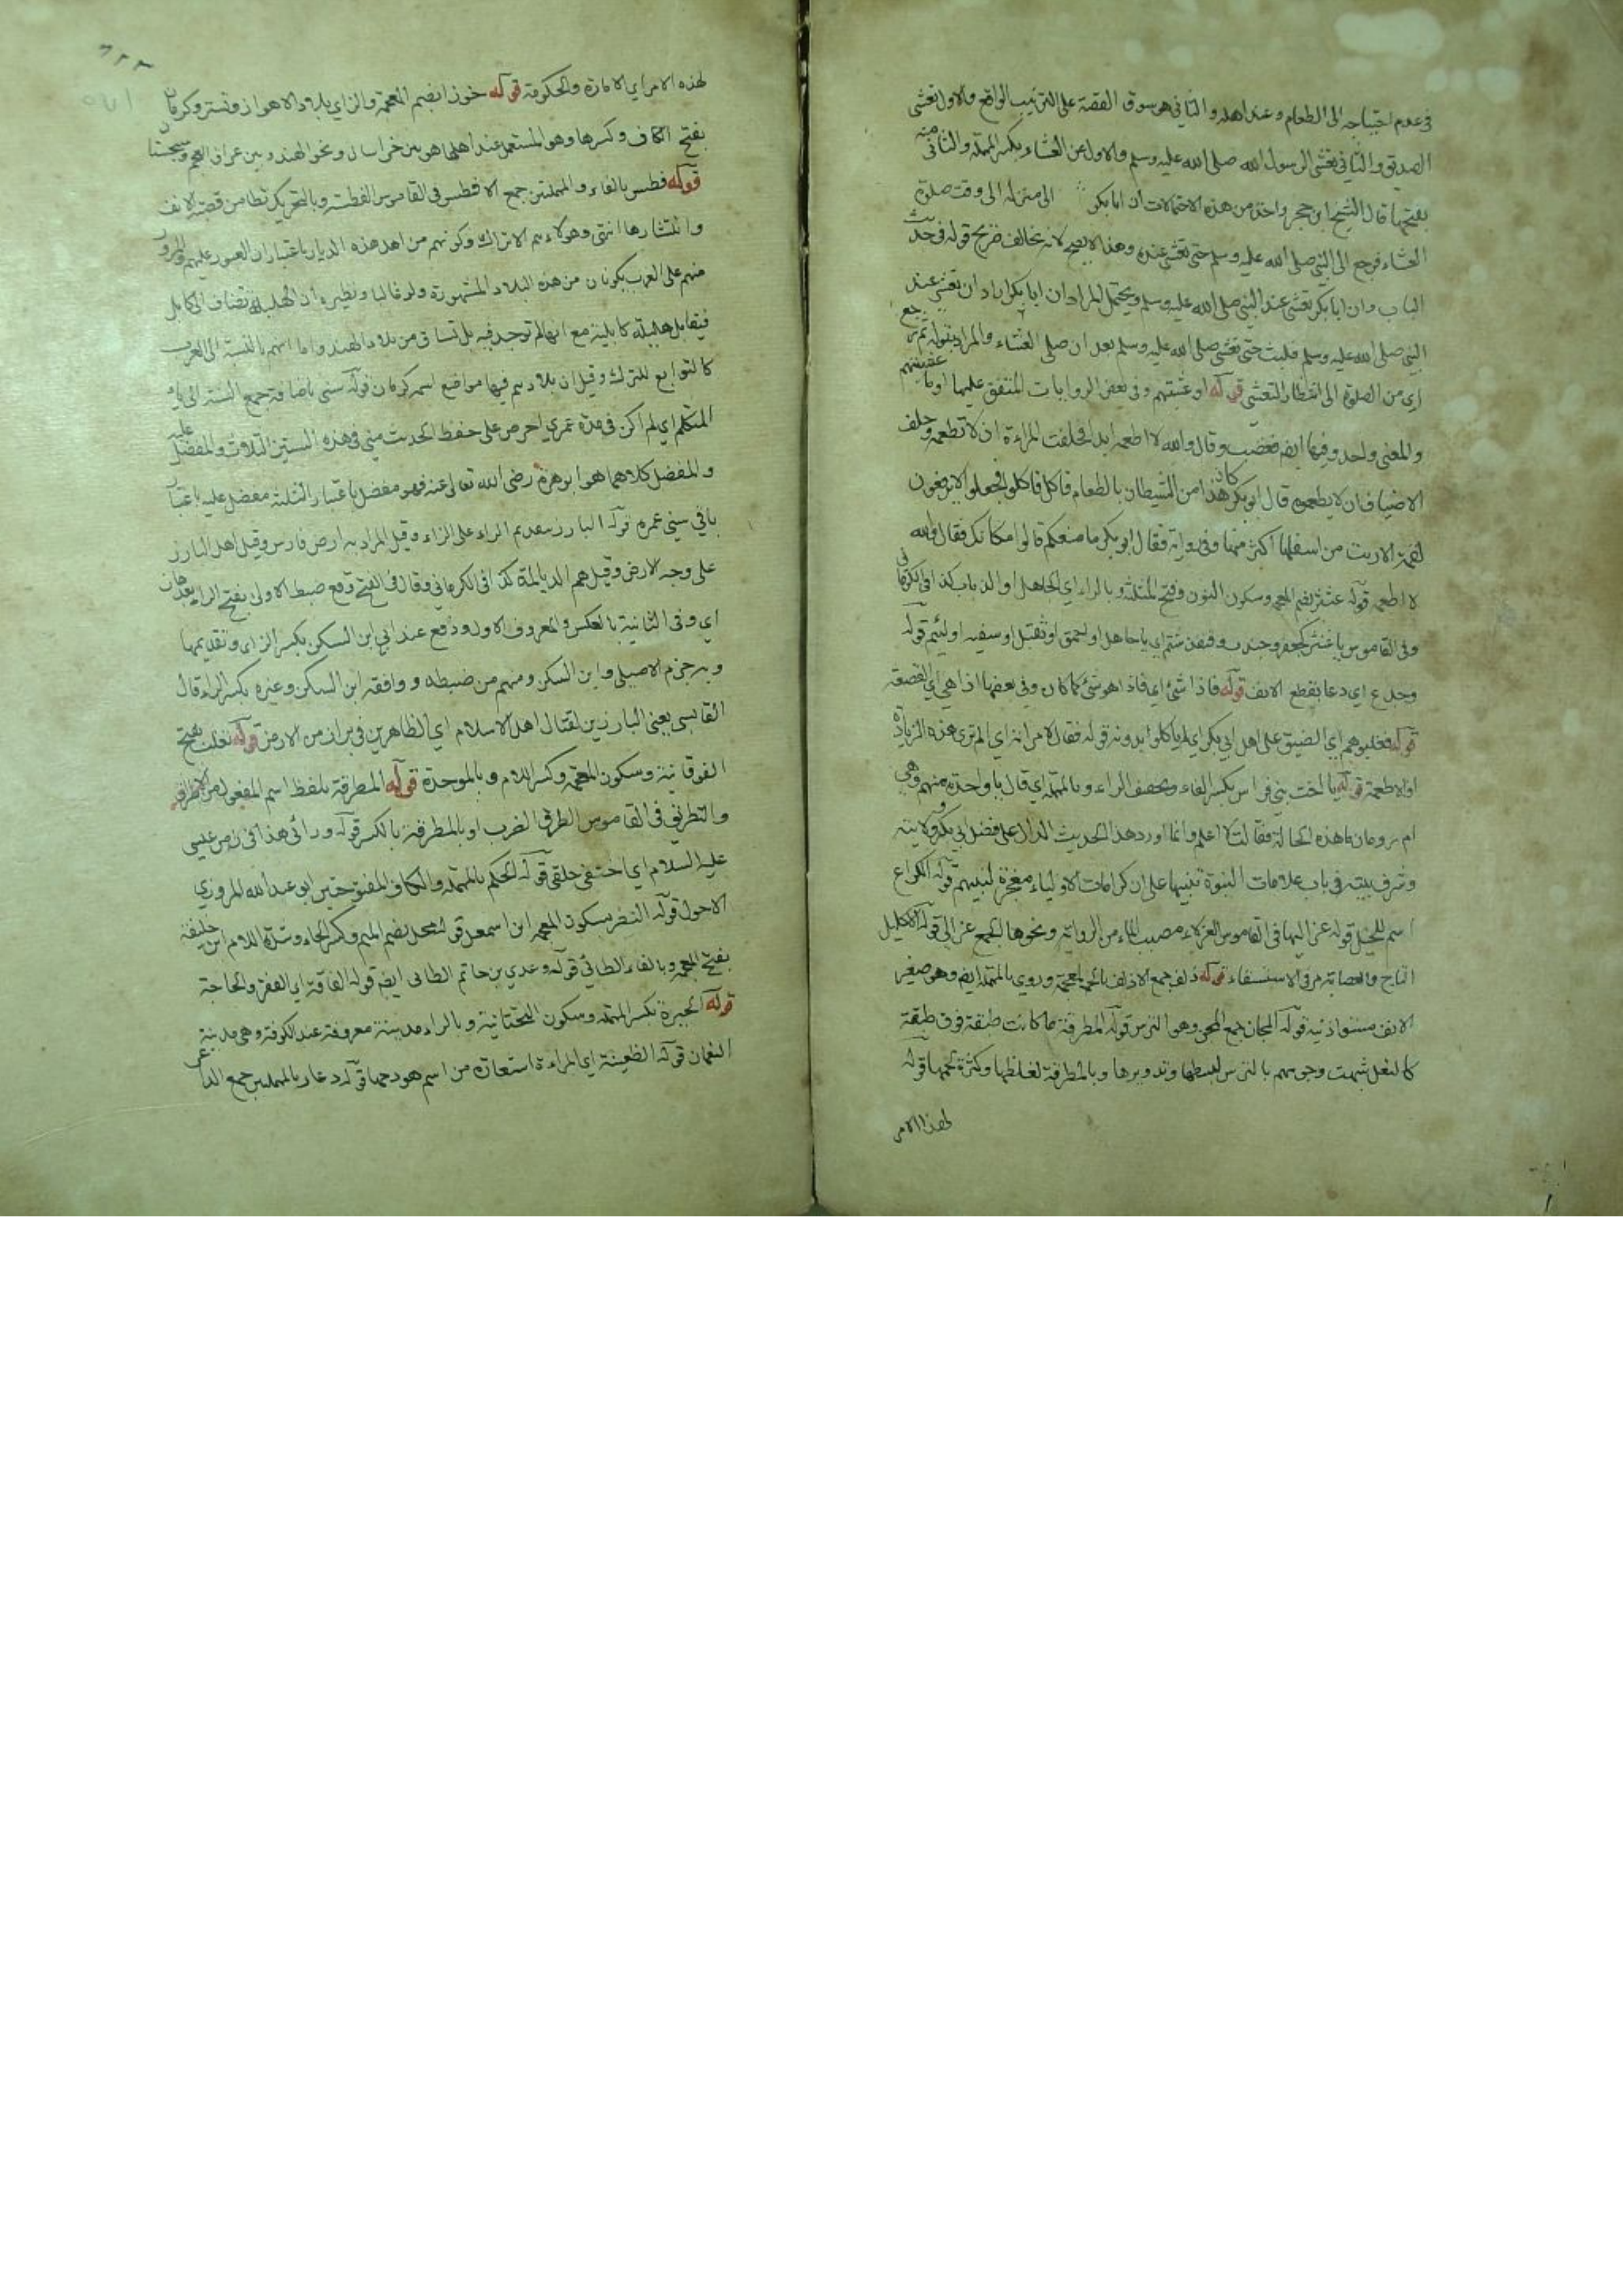 في عدم احتياجه الى الطعام وعند اهله والثاني هو سوق القصة على الترتيب الواقع والاول تعشي
الصديق والثاني تعشي الرسول الله صلى الله عليه وسلم والاول من العشاء بكسر المهملة والثاني منه
بفتحها قال الشيخ ابن حجر واحد من هذه الاحتمالات ان ابا بكر الى منزله الى وقت صلوة
العشاء فرجع الى النبي صلى الله عليه وسلم حتى تعشى عنده وهذا لا يصح لانه يخالف صريح قوله في حديث
الباب وان ابا بكر تعشى عند النبي صلى الله عليه وسلم ويحتمل المراد ان ابا بكر اراد ان يتعشى عند
النبي صلى الله عليه وسلم فلبث حتى تعشى صلى الله عليه وسلم بعد ان صلى العشاء والمراد بقوله ثم رجع
اي من الصلوة الى انتظار التعشي قوله او عشيتهم وفي بعض الروايات المتفق عليها او ما عشيتهم
والمعنى واحد وفيها ايضا فغضب وقال والله لا اطعمه ابدا فحلفت المراءة ان لا تطعمه وحلف
الاضياف ان لا يطعموه قال ابو بكر كان هذا من الشيطان بالطعام فاكل فاكلوا فجعلوا لا يرفعون
لقمة الا ربت من اسفلها اكثر منها وفي رواية فقال ابو بكر ما منعكم قالوا مكانك فقال والله
لا اطعمه قوله غنثر بضم المعجمة وسكون النون وفتح المثلثة وبالراء اي الجاهل او الذباب كذا في الكرماني
وفي القاموس يا غنثر كجعفر وجندب وقنفذ شتم اي يا جاهل او احمق او ثقيل او سفيه او لئيم قوله
وجدع اي دعا بقطع الانف قوله فاذا شئ اي فاذا هو شئ كما كان وفي بعضها اذا هي اي القصعة
قوله فغلبوهم اي الضيق على اهل ابي بكر اي لم ياكلوا بدونه قوله فقال لامراته اي الم تري هذه الزيادة
او الاطعمة قوله يا اخت بني فراس بكسر الفاء وتخفيف الراء وبالمهملة اي قال يا واحدة منهم وهي
ام رومان ما هذه الحالة فقالت لا اعلم وانما اورد هذا الحديث الدال على فضل ابي بكر وولايته
وشرف بيته في باب علامات النبوة تنبيها على ان كرامات الاولياء معجزة لنبيهم قوله الكراع
اسم للخيل قوله عزاليها في القاموس العزلاء مصب الماء من الراوية ونحوها الجمع عزالي قوله الاكليل
التاج والعصابة مر في الاستسقاء قوله ذلف جمع الاذلف بالمعجمة وروي بالمهملة ايضا وهو صغير
الانف مستوا ذنبه قوله المجان جمع المجن وهو الترس قوله المطرقة ما كانت طبقة فوق طبقة
كالنعل شبهت وجوههم بالترس لبسطها وتدويرها وبالمطرقة لغلظها وكثرة لحمها قوله
لهذا الامر
لهذه الامر اي الامارة والحكومة قوله خوزا بضم المعجمة والزاي بلاد الاهواز وتستر وكرمان
بفتح الكاف وكسرها وهو المستعمل عند اهلها هو بين خراسان ونحو الهند وبين عراق العجم وسجستان
قوله فطس بالفاء والمهملتين جمع الافطس في القاموس الفطسة وبالتحريك تطامن قصبة الانف
وانتشارها انتهى وهولاء هم الاتراك وكونهم من اهل هذه الديار باعتبار ان العبور عليهم والمرور
منهم على العرب يكونان من هذه البلاد المشهورة ولو غالبا ونظيره ان الهليلة تضاف الى كابل
فيقال هليلة كابلية مع انها لم توجد فيه بل تساق من بلاد الهند واما انهم بالنسبة الى العرب
كالتوابع للترك وقيل ان بلادهم فيها مواضع اسمه كرمان قوله سني باضافة جمع السنة الى ياء
المتكلم اي لم اكن في مدة عمري احرص على حفظ الحديث مني في هذه السنين الثلاث والمفضل عليه
والمفضل كلاهما هو ابو هريرة رضي الله تعالى عنه فهو مفضل باعتبار الثلثة مفضل عليه باعتبار
باقي سني عمره قوله البارز بتقديم الراء على الزاء وقيل المراد به ارض فارس وقيل اهل البارز
على وجه الارض وقيل هم الديالمة كذا في الكرماني وقال في الفتح وقع ضبط الاولى بفتح الراء بعدها زاي
اي وفي الثانية بالعكس والمعروف الاول ووقع عند ابي ابن السكن بكسر الزاي وتقديمها
وبه جزم الاصيلي وابن السكن ومنهم من ضبطه ووافقه ابن السكن وغيره بكسر الراء قال
القابسي يعني البارزين لقتال اهل الاسلام اي الظاهرين في براز من الارض قوله تغلب بفتح
الفوقانية وسكون المعجمة وكسر اللام وبالموحدة قوله المطرقة بلفظ اسم المفعول من الاطراق
والتطريق في القاموس الطرق الضرب او بالمطرقة بالكسر قوله ورائي هذا في زمن عيسى
عليه السلام اي اختفى خلفي قوله الحكم بالمهملة والكاف المفتوحتين ابو عبد الله المروزي
الاحول قوله النضر بسكون المعجمة ابن اسمعيل قوله محل بضم الميم وكسر الحاء وشدة اللام ابن خليفة
بفتح المعجمة وبالفاء الطائي قوله وعدي بن حاتم الطائي ايضا قوله الفاقة اي الفقر والحاجة
قوله الحيرة بكسر المهملة وسكون التحتانية وبالراء مدينة معروفة عند الكوفة وهي مدينة
النعمان قوله الظعينة اي المراءة استعارة من اسم هودجها قوله دعار بالمهملتين جمع الداعر